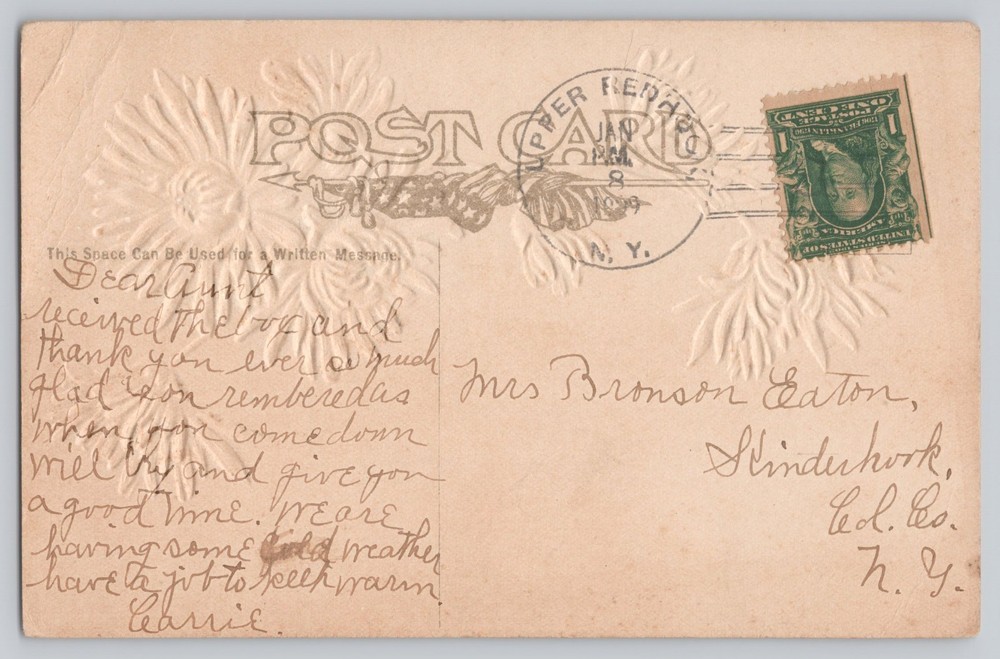 POST CARD
UPPER RED HOOK
JAN
8
1909
N. Y.
ONE CENT
POSTAGE
1 1
FRANKLIN
AMERICA
UNITED STATES OF
This Space Can Be Used for a Written Message.
Dear Aunt
recieved the box and
thank you ever so much
glad you rembered us
when you come down
will try and give you
a good time. We are
having some cold weather
have a job to keep warm
Carrie.
Mrs Bronson Eaton,
Kinderhook,
Col. Co.
N. Y.